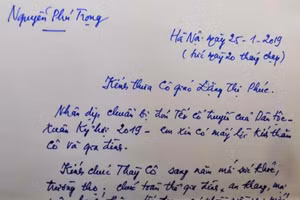 Nguyễn Phú Trọng
Hà Nội ngày 25-1-2019
(tức ngày 20 tháng chạp)
Kính thưa Cô giáo Đặng Thị Phúc.
Nhân dịp chuẩn bị đón Tết cổ truyền của Dân tộc -
Xuân Kỷ hợi 2019 - em xin có mấy lời kính thăm
cô và gia đình.
Kính chúc Thầy Cô sang năm mới sức khỏe,
trường thọ; chúc toàn thể gia đình, an khang,